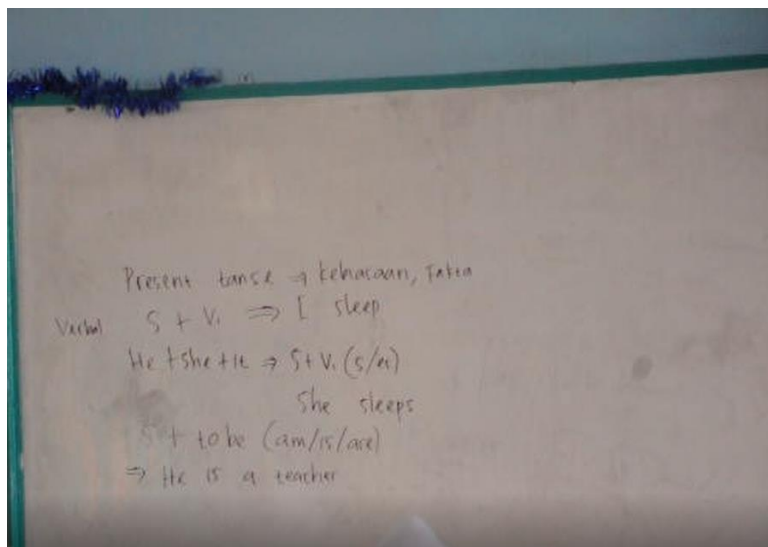 Present tanse ⇒ kebiasaan, Fakta
Verbal S + V₁ ⇒ I sleep
He + she + it ⇒ S + V₁ (s/es)
She sleeps
S + to be (am/is/are)
⇒ He is a teacher